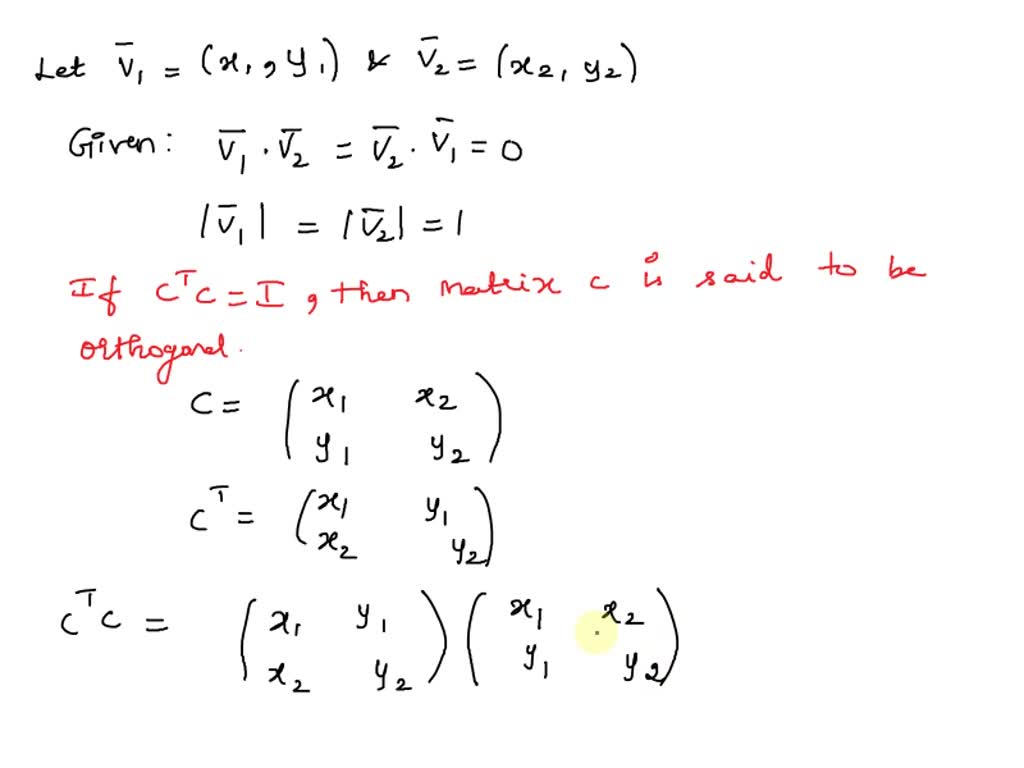 Let V̄₁ = (x₁, y₁) & V̄₂ = (x₂, y₂)
Given: V̄₁ · V̄₂ = V̄₂ · V̄₁ = 0
|V̄₁| = |V̄₂| = 1
If CᵀC = I, then matrix C is said to be
orthogonal.
C = ( x₁ x₂
y₁ y₂ )
Cᵀ = ( x₁ y₁
x₂ y₂ )
CᵀC = ( x₁ y₁ ) ( x₁ x₂ )
( x₂ y₂ ) ( y₁ y₂ )